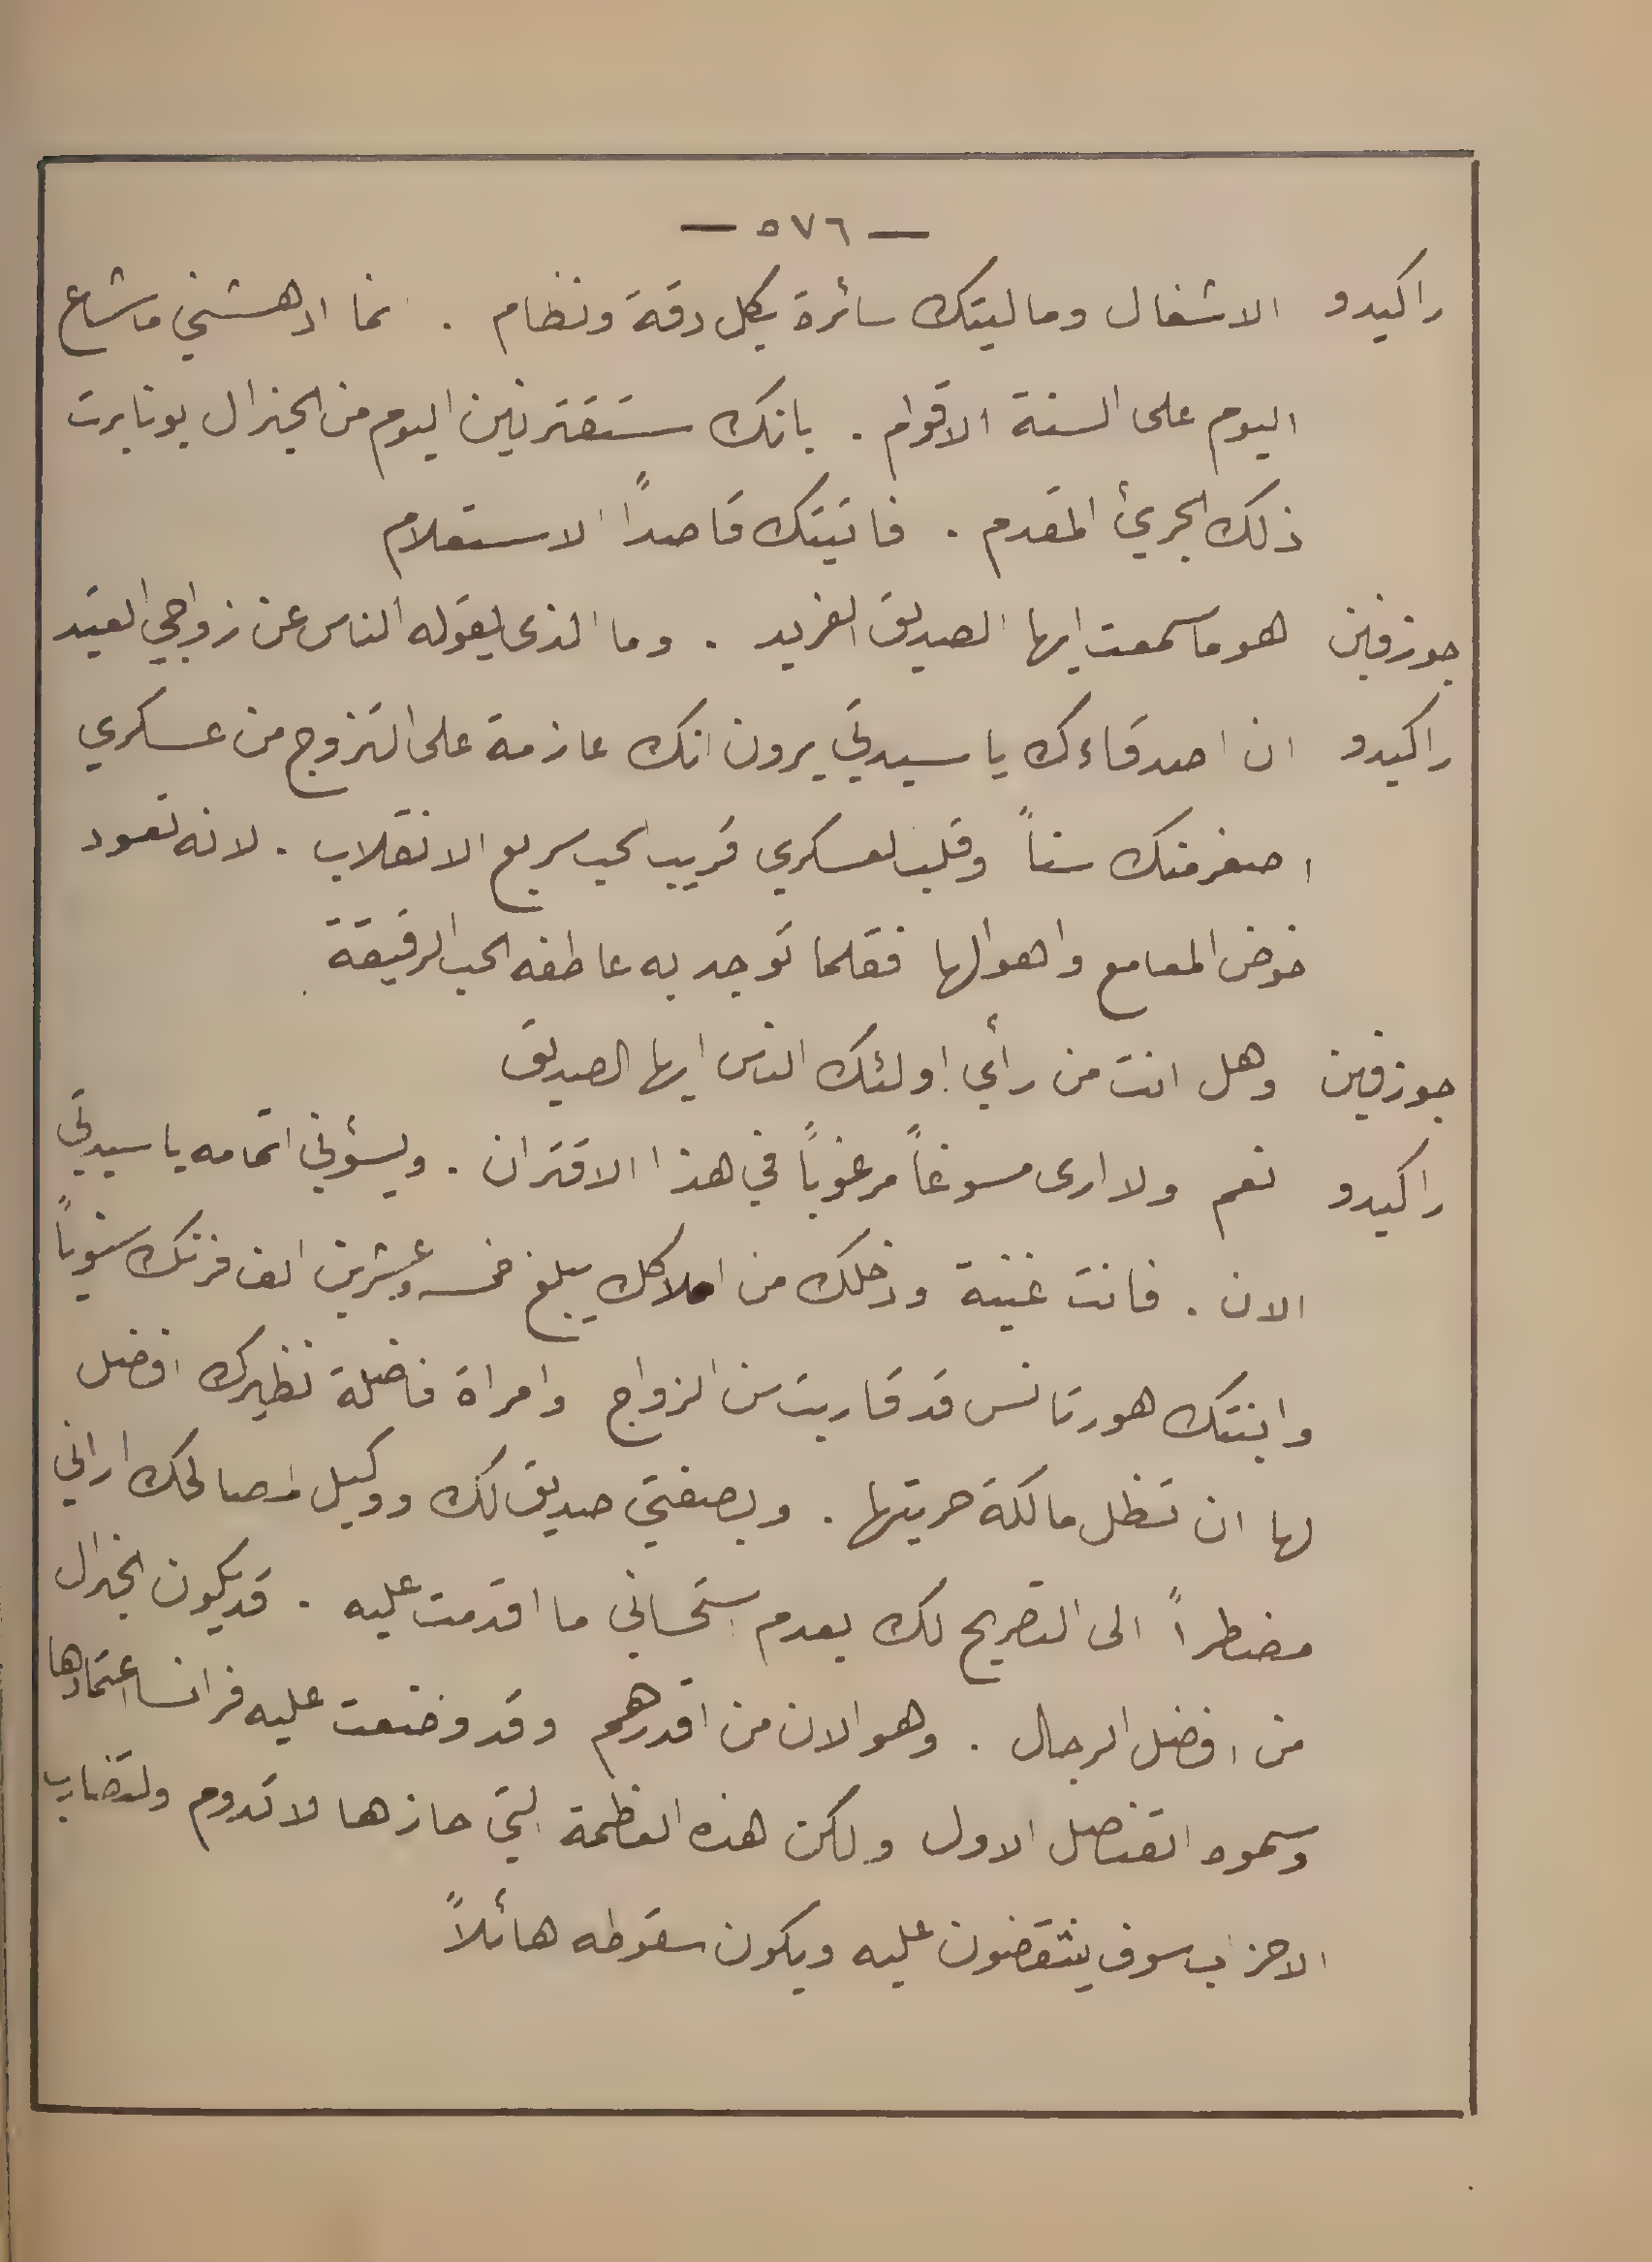 — ٥٧٦ —
راكيدو الاشغال وماليتك سائرة بكل دقة ونظام . انما ادهشني ما شاع
اليوم على السنة الاقوام . بانك ستقترنين اليوم من الجنرال بونابرت
ذلك الجريئ المقدم . فاتيتك قاصداً الاستعلام
جوزفين هو ما سمعت ايها الصديق الفريد . وما الذى يقوله الناس عن زواجي العتيد
راكيدو ان اصدقاءك يا سيدتي يرون انك عازمة على التزوج من عسكري
اصغر منك سناً وقلب العسكري قريب الحب سريع الانقلاب . لانه تعود
خوض المعامع واهوالها فقلما توجد به عاطفه الحب الرقيقة
جوزفين وهل انت من رأي اولئك الناس ايها الصديق
راكيدو نعم ولا ارى مسوغاً مرغوباً في هذا الاقتران . ويسؤني اتمامه يا سيدتي
الان . فانت غنية ودخلك من املاكك يبلغ خمسه وعشرين الف فرنك سنوياً
وابنتك هورتانس قد قاربت سن الزواج وامراة فاضلة نظيرك افضل
لها ان تظل مالكة حريتها . وبصفتي صديق لك ووكيل مصالحك اراني
مضطراً الى التصريح لك بعدم استحساني ما اقدمت عليه . قد يكون الجنرال
من افضل الرجال . وهو الان من اقدرهم وقد وضعت عليه فرانسا اعتمادها
وسموه القنصل الاول ولكن هذه العظمة التي حازها لا تدوم ولتضارب
الاحزاب سوف ينقضون عليه ويكون سقوطه هائلاً